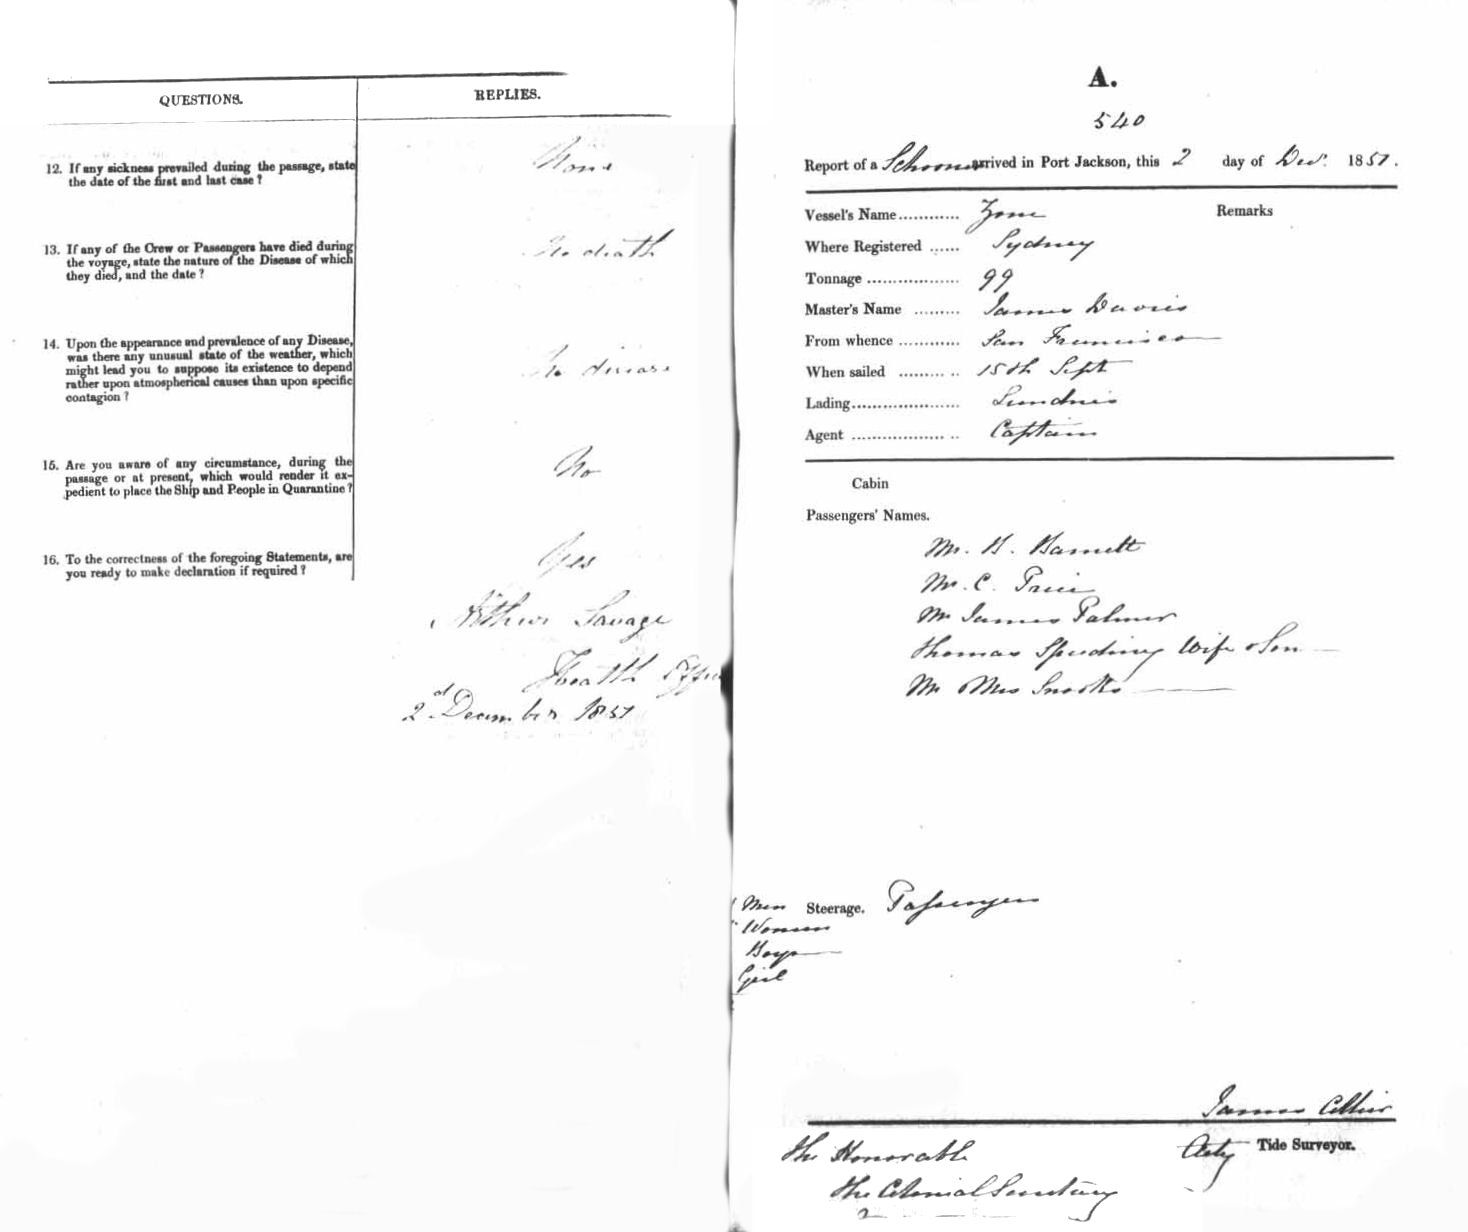 QUESTIONS.
REPLIES.
12. If any sickness prevailed during the passage, state
the date of the first and last case ?
None
13. If any of the Crew or Passengers have died during
the voyage, state the nature of the Disease of which
they died, and the date ?
No death
14. Upon the appearance and prevalence of any Disease,
was there any unusual state of the weather, which
might lead you to suppose its existence to depend
rather upon atmospherical causes than upon specific
contagion ?
No disease
15. Are you aware of any circumstance, during the
passage or at present, which would render it ex-
pedient to place the Ship and People in Quarantine ?
No
16. To the correctness of the foregoing Statements, are
you ready to make declaration if required ?
Yes
Arthur Savage
Health
2d December 1851
A.
540
Report of a Schooner arrived in Port Jackson, this 2 day of Decr. 1851.
Vessel's Name............ Zone Remarks
Where Registered ...... Sydney
Tonnage .................. 99
Master's Name ......... James Davis
From whence ............ San Francisco
When sailed ......... .. 15th Sept
Lading..................... Sundries
Agent .................. .. Captain
Cabin
Passengers' Names.
Mr. B. Barnett
Mr. C. Price
Mr James Palmer
Thomas Wife & Son
Mr & Mrs Snooks
Men Steerage. Passengers
Women
Boys
Girl
James
Actg Tide Surveyor.
The Honorable
The Colonial Secretary